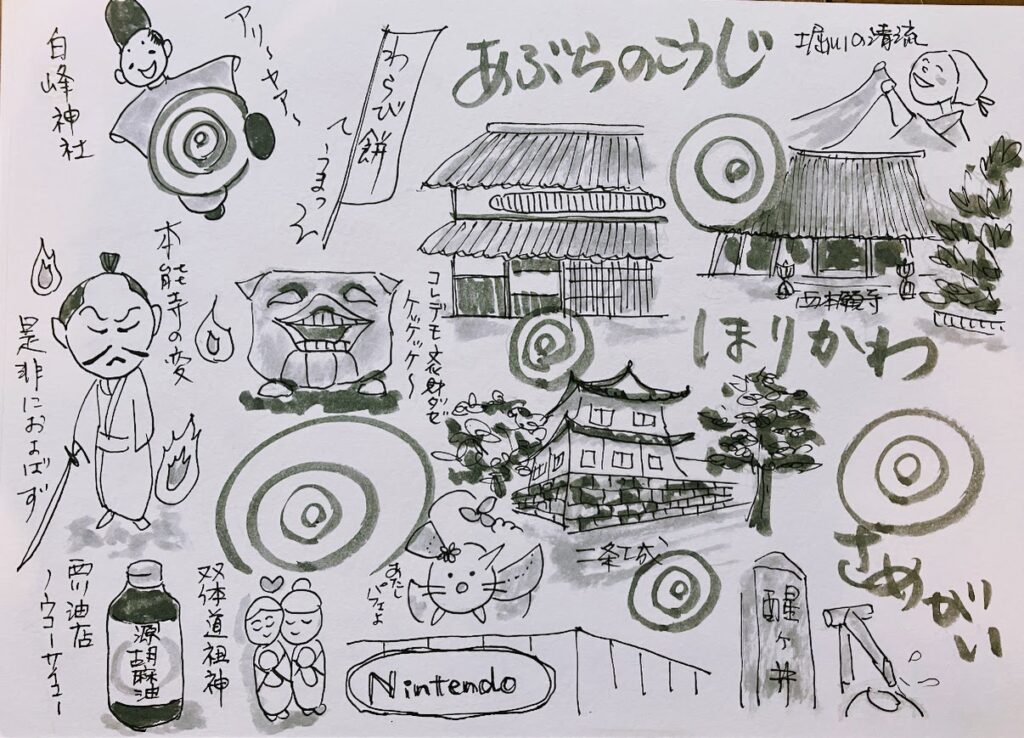 白峰神社
アリ〜ヤア〜
わらび餅
て〜うまっそ
あぶらのこうじ
堀川の清流
西本願寺
ほりかわ
本能寺の変
是非におよばず
コレデモ文化財ダゼ
ケッケッケ〜
二条城
さめがい
醒ヶ井
あたし
パフェよ
双体道祖神
西川油店
源胡麻油
Nintendo